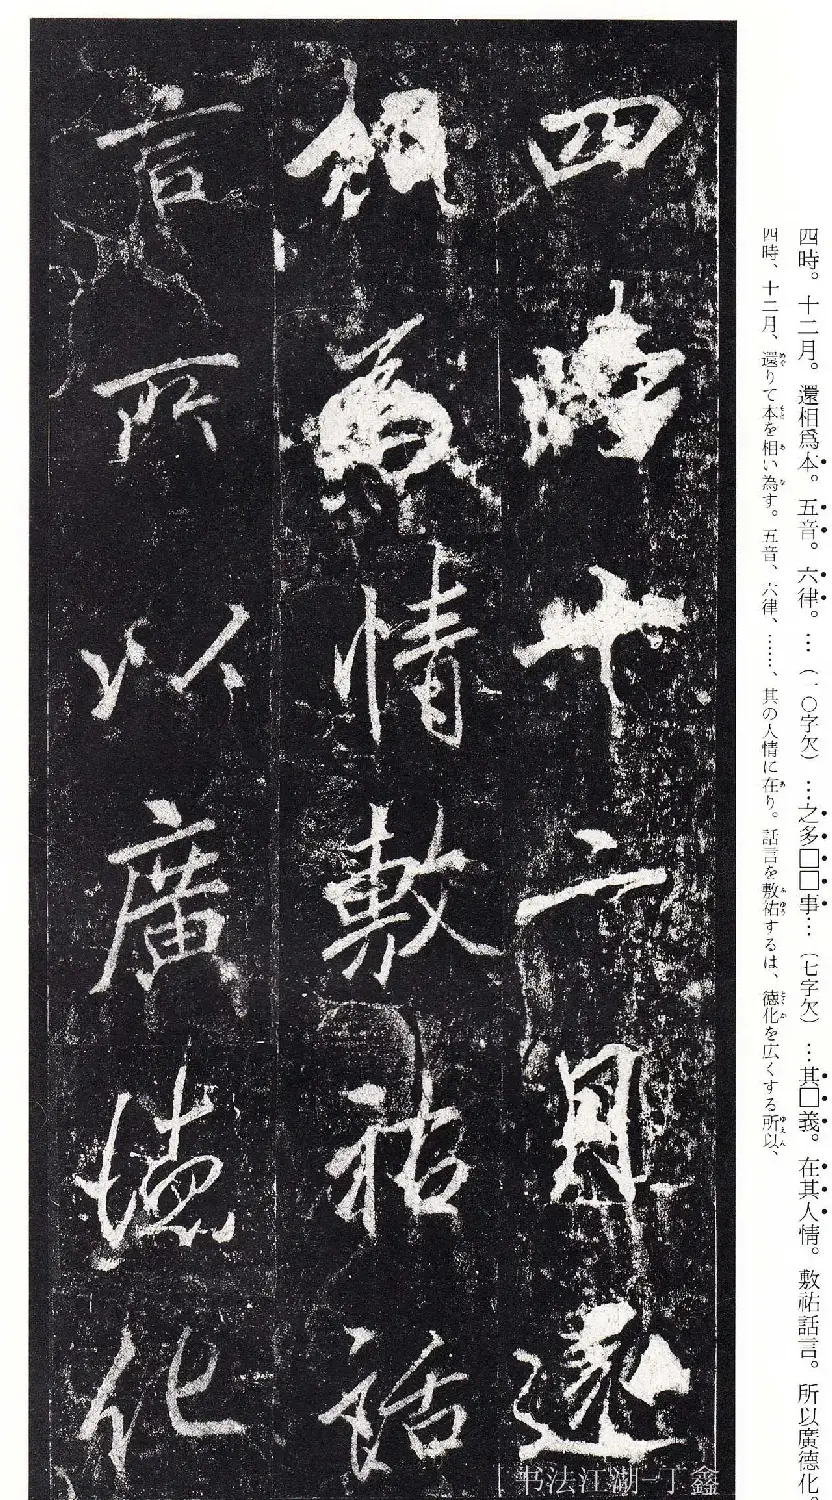 四時。十二月。還相爲本。五音。六律。…(一〇字欠)…之多□□事…(七字欠)…其□義。在其人情。敷祐話言。所以廣德化。
四時、十二月、還りて本を相い為す。五音、六律、……、其の人情に在り。話言を敷祐するは、德化を広くする所以、
四時十二月還
相為情敷祐話
言所以廣德化
书法江湖-丁鑫